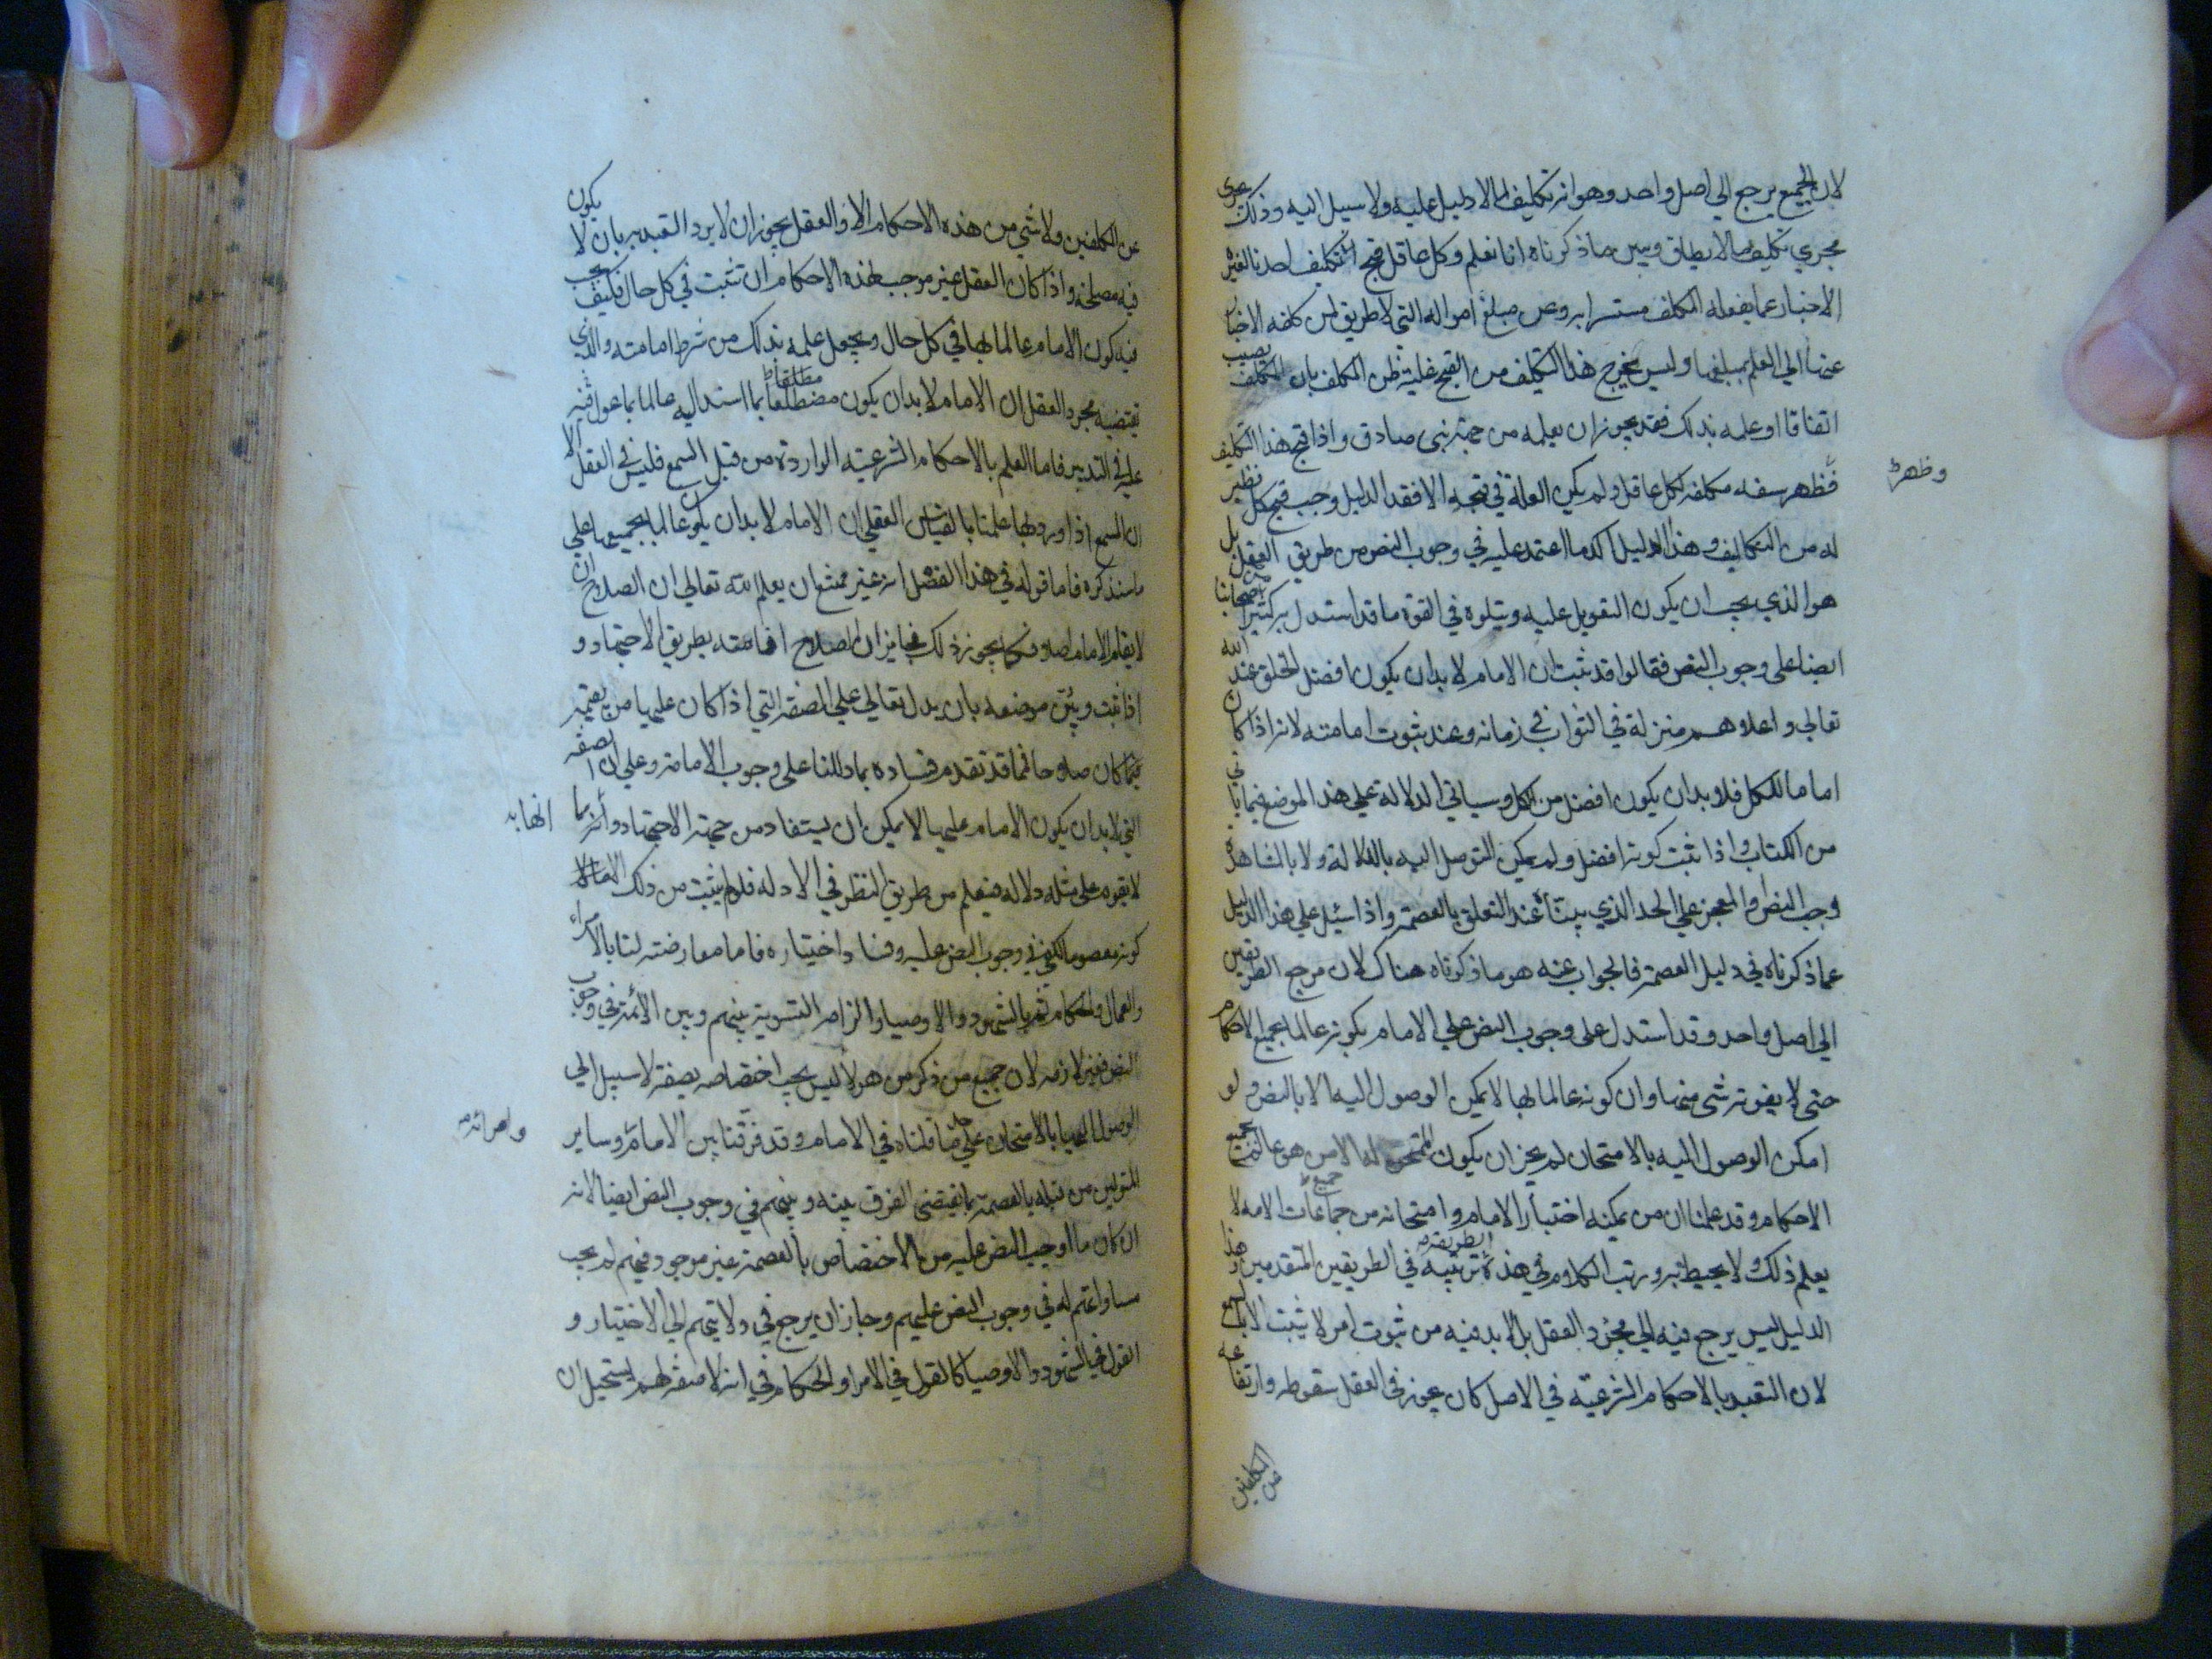 لان الجميع يرجع الي اصل واحد وهو انه تكليف لما لا دليل عليه ولا سبيل اليه وذلك يجري
مجري تكليف ما لا يطاق ويبين ما ذكرناه انا نعلم وكل عاقل قبح تكليف احدنا لغيره
الاخبار عما يفعله المكلف مستسرا به وعن مبلغ امواله التي لا طريق لمن كلفه الاخبار
عنها الي العلم بمبلغها وليس يخرج هذا التكليف من القبح غلبة ظن المكلف بان المكلف يصيب
اتفاقا او علمه بذلك فقد يجوز ان يعلمه من جهة نبي صادق واذا قبح هذا التكليف
فظهر سفه مكلفه لكل عاقل ولم يكن العلة في قبحه الا فقد الدليل وجب قبح كل نظير
وظهر
له من التكاليف وهذا الدليل اكد ما اعتمد عليه في وجوب النص من طريق العقل بل
هو الذي يجب ان يكون التعويل عليه ويتلوه في القوة ما قد استدل به كثير من اصحابنا
ايضا على وجوب النص فقالوا قد ثبت ان الامام لا بد ان يكون افضل الخلق عند الله
تعالي واعلاهم منزلة في الثواب في زمانه وعند ثبوت امامته لانه اذا كان
اماما للكل فلا بد ان يكون افضل من الكل وسياتي الدلالة علي هذا الموضع فيما ياتي
من الكتاب واذا ثبت كونه افضل ولم يمكن التوصل اليه بالدلالة ولا بالمشاهدة
وجب النص او المعجز علي الحد الذي بيناه عند التعلق بالعصمة واذا سئل علي هذا الدليل
عما ذكرناه في دليل العصمة فالجواب عنه هو ما ذكرناه هناك لان مرجع الطريقين
الي اصل واحد وقد استدل على وجوب النص علي الامام بكونه عالما بجميع الاحكام
حتي لا يفوته شي منها وان كونه عالما لها لا يمكن الوصول اليه الا بالنص ولو
امكن الوصول اليه بالامتحان لم يجز ان يكون الممتحن له الا من هو عالم بجميع
الاحكام وقد علمنا ان من يمكنه اختبار الامام وامتحانه من جماعات الامه لا
جميع
يعلم ذلك ولا يحيط به ورتب الكلام في هذه الطريقة ترتيبه في الطريقين المتقدمين وهذا
الدليل ليس يرجع فيه الي مجرد العقل بل لا بد فيه من ثبوت امر لا يثبت الا بالسمع
لان التعبد بالاحكام الشرعيه في الاصل كان يجوز في العقل سقوطه وارتفاعه
عن المكلفين
عن المكلفين ولا شي من هذه الاحكام الا والعقل يجوز ان لا يرد التعبد به بان لا يكون
فيه مصلحه واذا كان العقل غير موجب لهذه الاحكام ان تثبت في كل حال فكيف يجب
فيه كون الامام عالما بها في كل حال ويجعل علمه بذلك من شرط امامته والذي
يقتضيه مجرد العقل ان الامام لا بد ان يكون مضطلعا بما اسند اليه عالما بما عول فيه
مطلقا
عليه في التدبير فاما العلم بالاحكام الشرعيه الوارده من قبل السمع فليس في العقل الا
ان السمع اذا ورد بها علمنا بالقياس العقلي ان الامام لا بد ان يكون عالما بجميعها علي
ما سنذكره فاما قوله في هذا الفصل انه غير ممتنع ان يعلم الله تعالي ان الصلاح ان
لا يقام الامام اصلا فكما يجوز ذلك فجايز ان الصلاح اقامته بطريق الاجتهاد و
اذا ثبت وبين موضعه بان يدل تعالي علي الصفة التي اذا كان عليها من يقيمه
فيما كان صلاحا فما قد تقدم فساده بما دللنا على وجوب الامامة وعلي ان الصفه
التي لا بد ان يكون الامام عليها لا يمكن ان يستفاد من جهة الاجتهاد وانه مما
انها به
لا يقوم على مثله دلاله فيعلم من طريق النظر في الادله فلو لم يثبت من ذلك الا
كونه معصوما لكفى في وجوب النص عليه وفساد اختياره فاما معارضته لنا بالامراء
والعمال والحكام ثم بالشهود والاوصياء والزامه التسوية بينهم وبين الائمة في وجوب
النص فغير لازمه لان جميع من ذكر من هولا ليس يجب اختصاصه بصفة لا سبيل الي
الوصول اليها بالامتحان علي ما قلناه في الامام وقد فرقنا بين الامام وساير
وامرائه
المتولين من قبله بالعصمة بما يقتضي الفرق بينه وبينهم في وجوب النص ايضا لانه
ان كان ما اوجب النص عليه من الاختصاص بالعصمة غير موجود فيهم لم يجب
مساواتهم له في وجوب النص عليهم وجاز ان يرجع في ولايتهم الي الاختيار و
القول في الشهود والاوصيا كالقول في الامرا والحكام في انه لا صفة لهم يستحيل ان